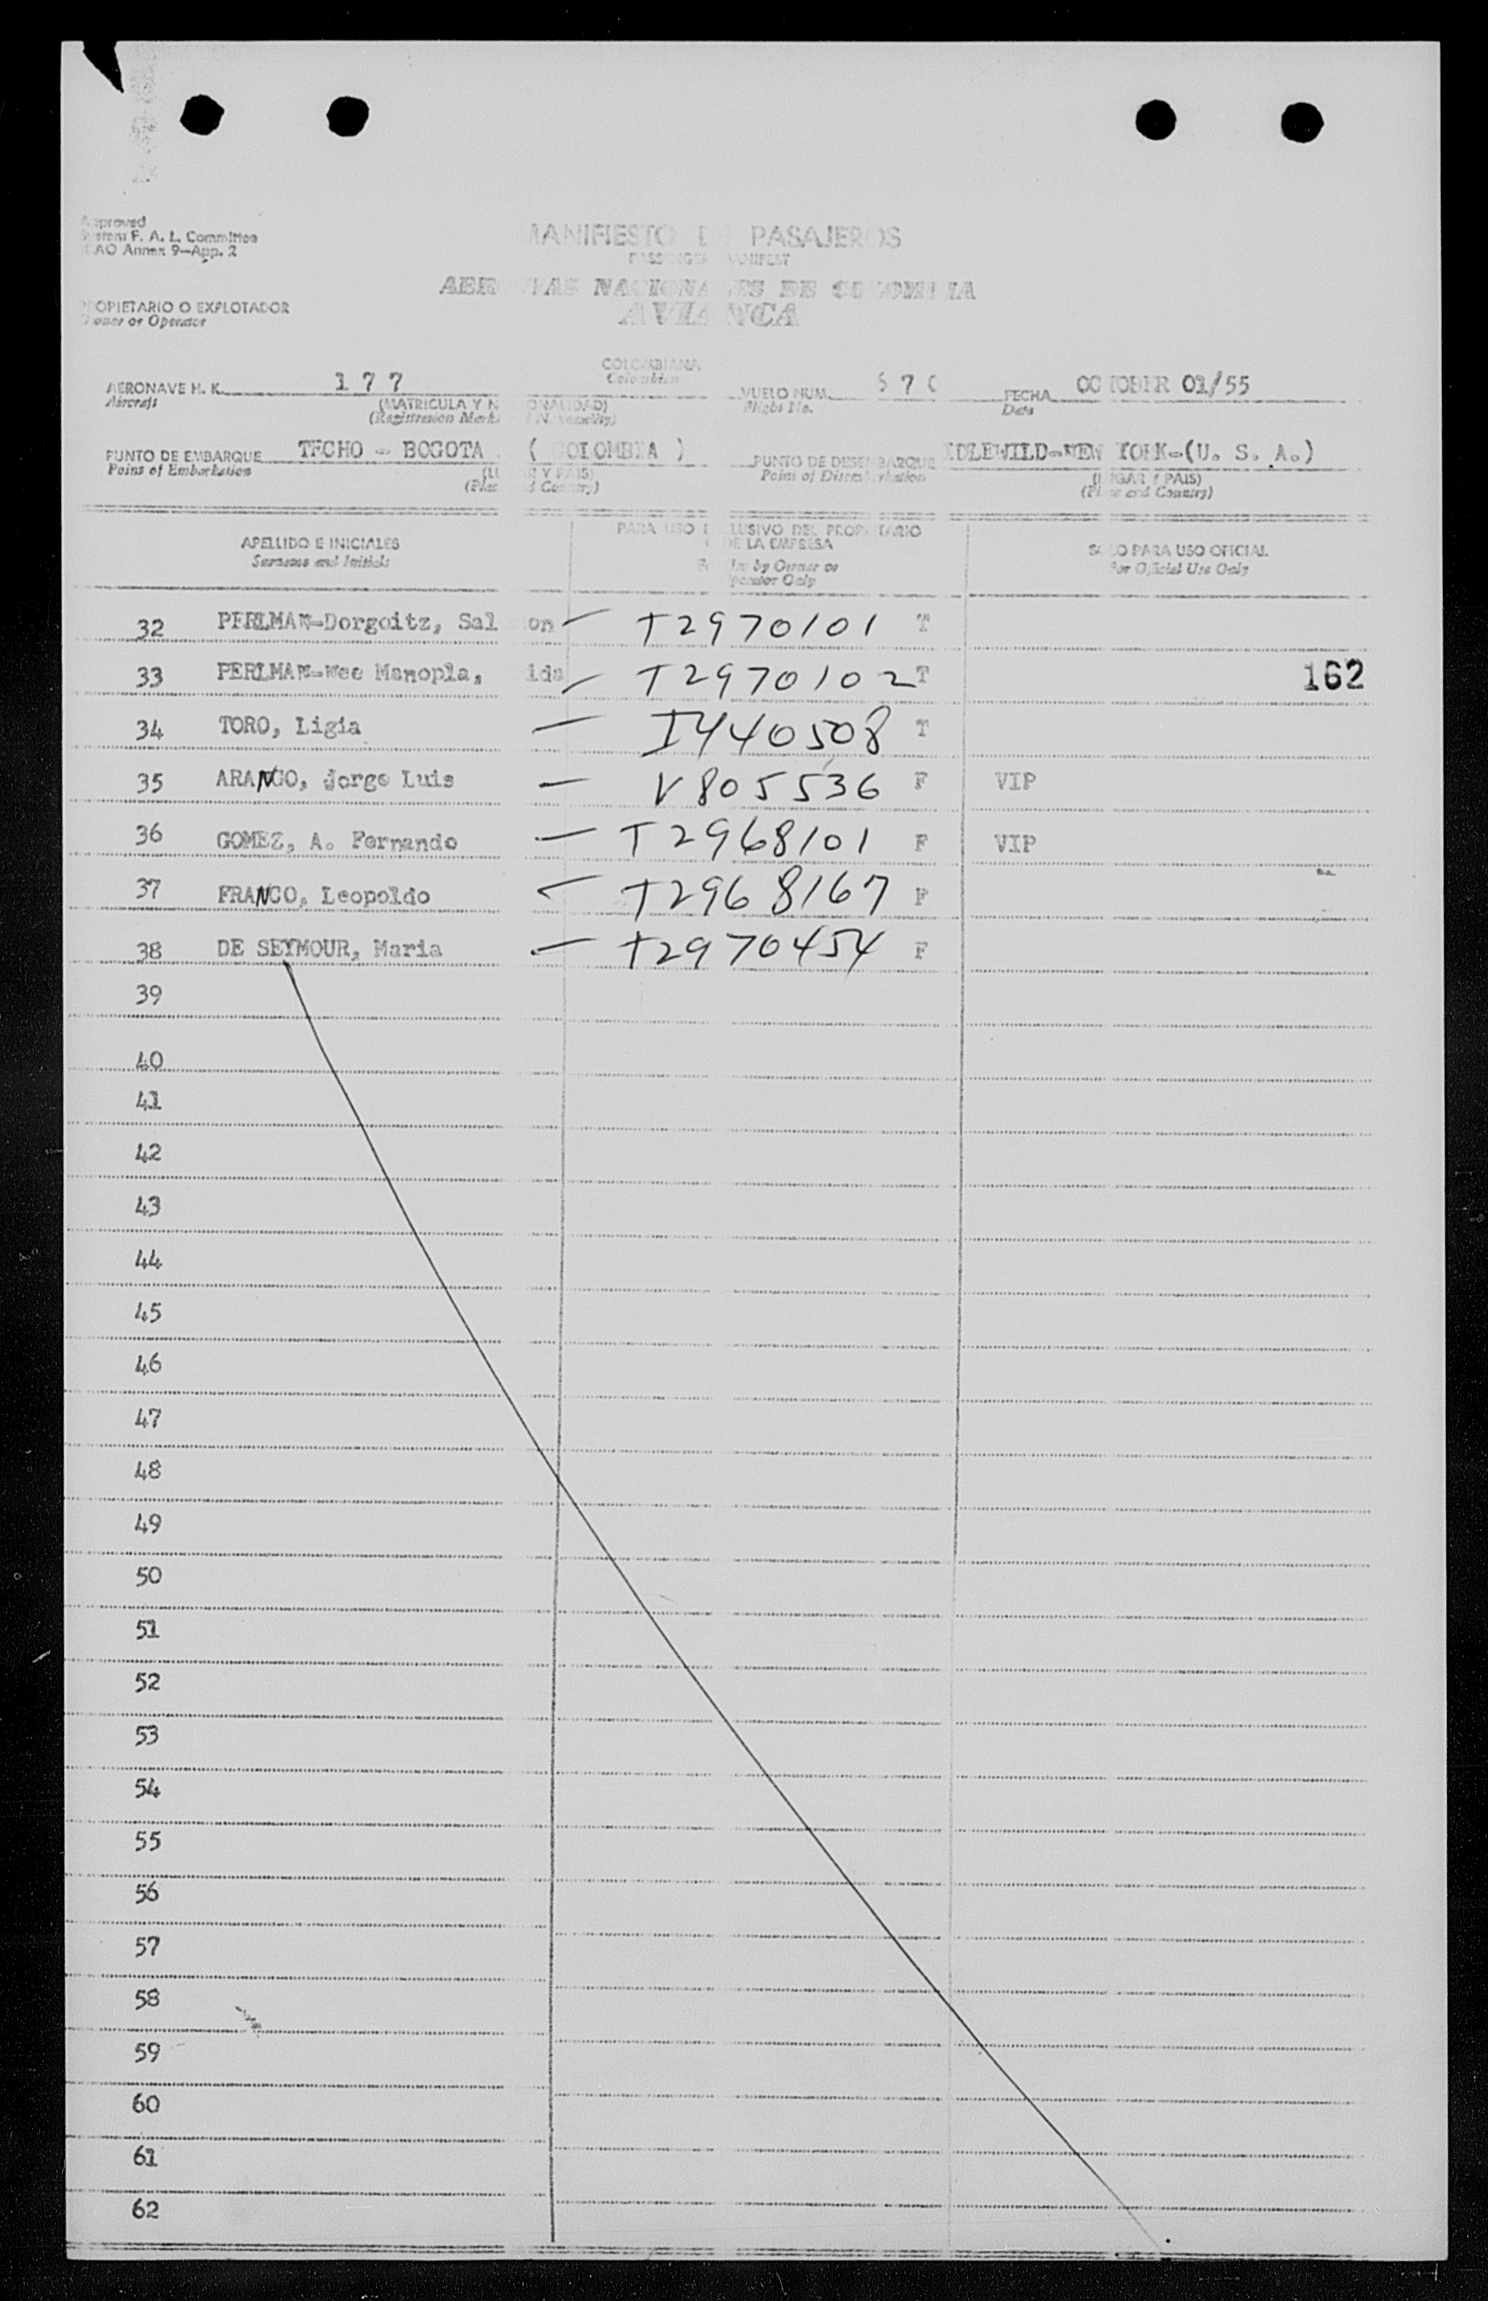 Approved
System F. A. L. Committee
ICAO Annex 9—App. 2
MANIFIESTO DE PASAJEROS
PASSENGER MANIFEST
AEROVIAS NACIONALES DE COLOMBIA
AVIANCA
PROPIETARIO O EXPLOTADOR
Owner or Operator
COLOMBIANA
Colombian
AERONAVE H. K. 1 7 7
Aircraft
(MATRICULA Y NACIONALIDAD)
(Registration Marks and Nationality)
VUELO NUM. 6 7 0
Flight No.
FECHA OCTOBER 01/55
Date
PUNTO DE EMBARQUE TECHO - BOGOTA ( COLOMBIA )
Point of Embarkation
(LUGAR Y PAIS)
(Place and Country)
PUNTO DE DESEMBARQUE IDLEWILD-NEW YORK-(U. S. A.)
Point of Disembarkation
(LUGAR Y PAIS)
(Place and Country)
APELLIDO E INICIALES
Surname and Initials
PARA USO EXCLUSIVO DEL PROPIETARIO
O DE LA EMPRESA
For Use by Owner or
Operator Only
SOLO PARA USO OFICIAL
For Official Use Only
32 PERLMAN-Dorgoitz, Sal on — T2970101 T
33 PERLMAN-Wee Manopla, lda — T2970102 T 162
34 TORO, Ligia — I440508 T
35 ARANGO, Jorge Luis — V805536 F VIP
36 GOMEZ, A. Fernando — T2968101 F VIP
37 FRANCO, Leopoldo — T2968167 F
38 DE SEYMOUR, Maria — T2970454 F
39
40
41
42
43
44
45
46
47
48
49
50
51
52
53
54
55
56
57
58
59
60
61
62